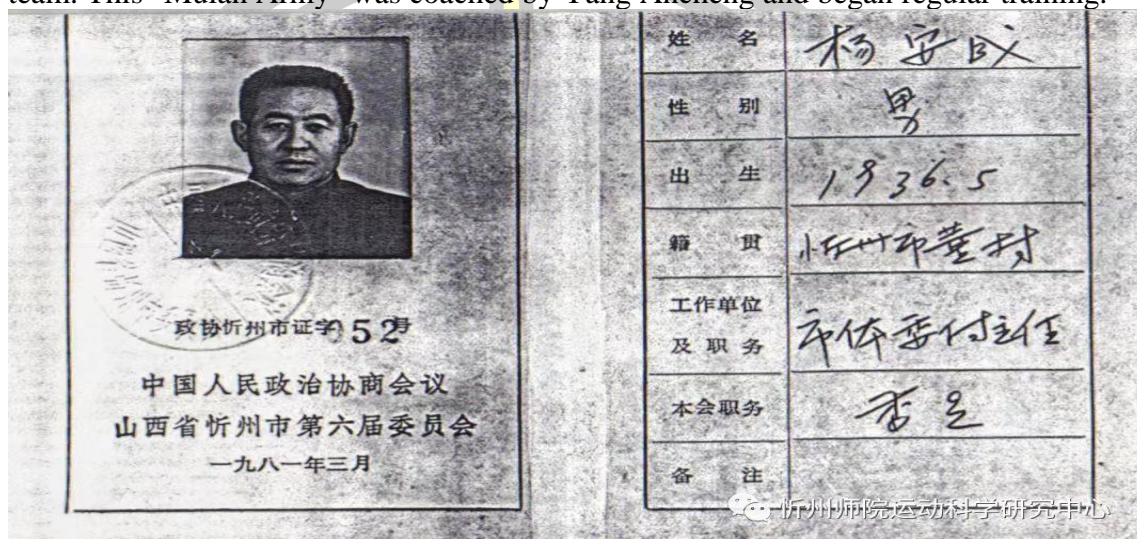 team. This "Mulan Army" was coached by Yang Ancheng and began regular training.
政协忻州市证字052号
中国人民政治协商会议
山西省忻州市第六届委员会
一九八一年三月
姓名 杨安成
性别 男
出生 1936.5
籍贯 忻州市董村
工作单位
及职务 市体委付主任
本会职务 委员
备注
忻州师院运动科学研究中心